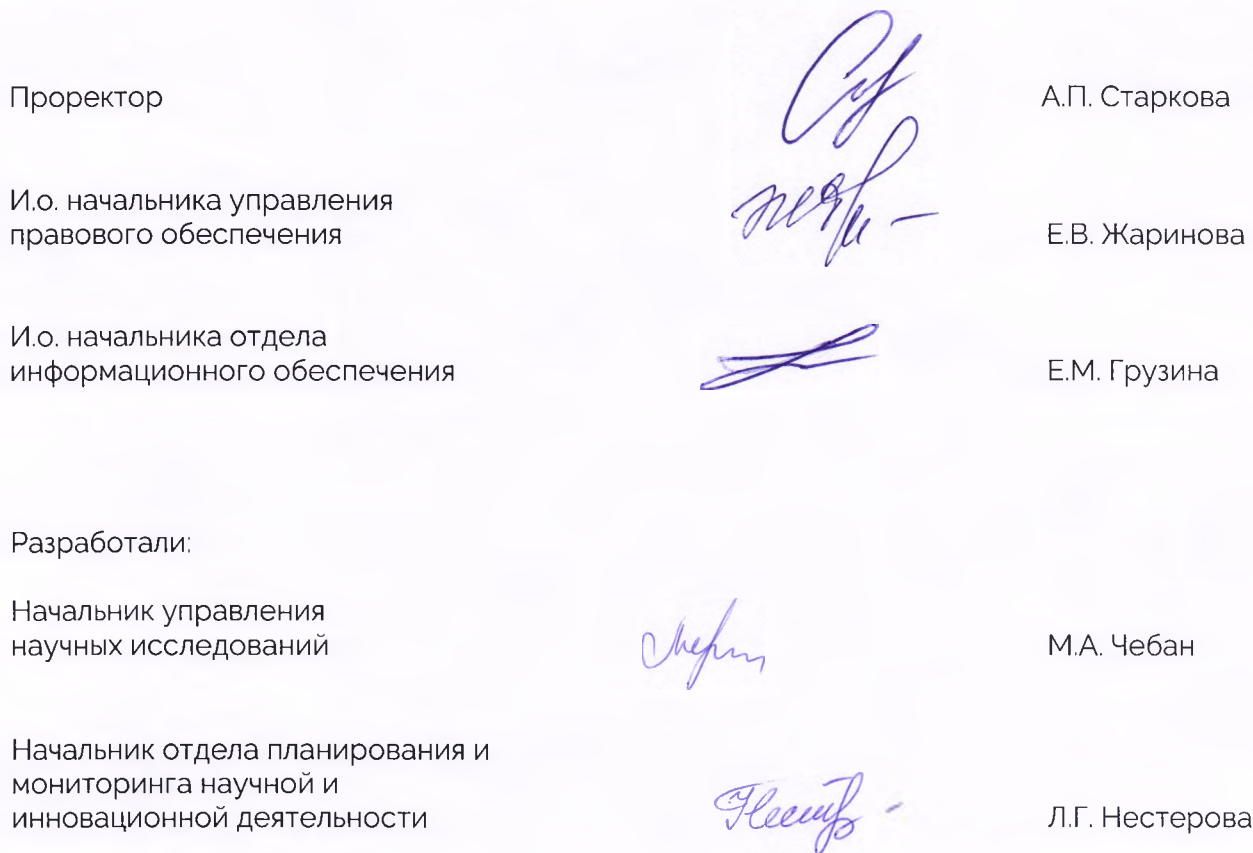 Проректор
А.П. Старкова
И.о. начальника управления
правового обеспечения
Е.В. Жаринова
И.о. начальника отдела
информационного обеспечения
Е.М. Грузина
Разработали:
Начальник управления
научных исследований
М.А. Чебан
Начальник отдела планирования и
мониторинга научной и
инновационной деятельности
Л.Г. Нестерова